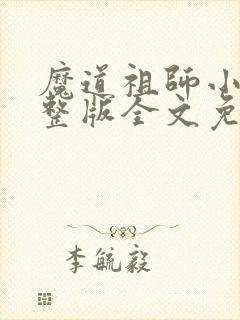 魔道祖師小
整版全文免
李毓毅